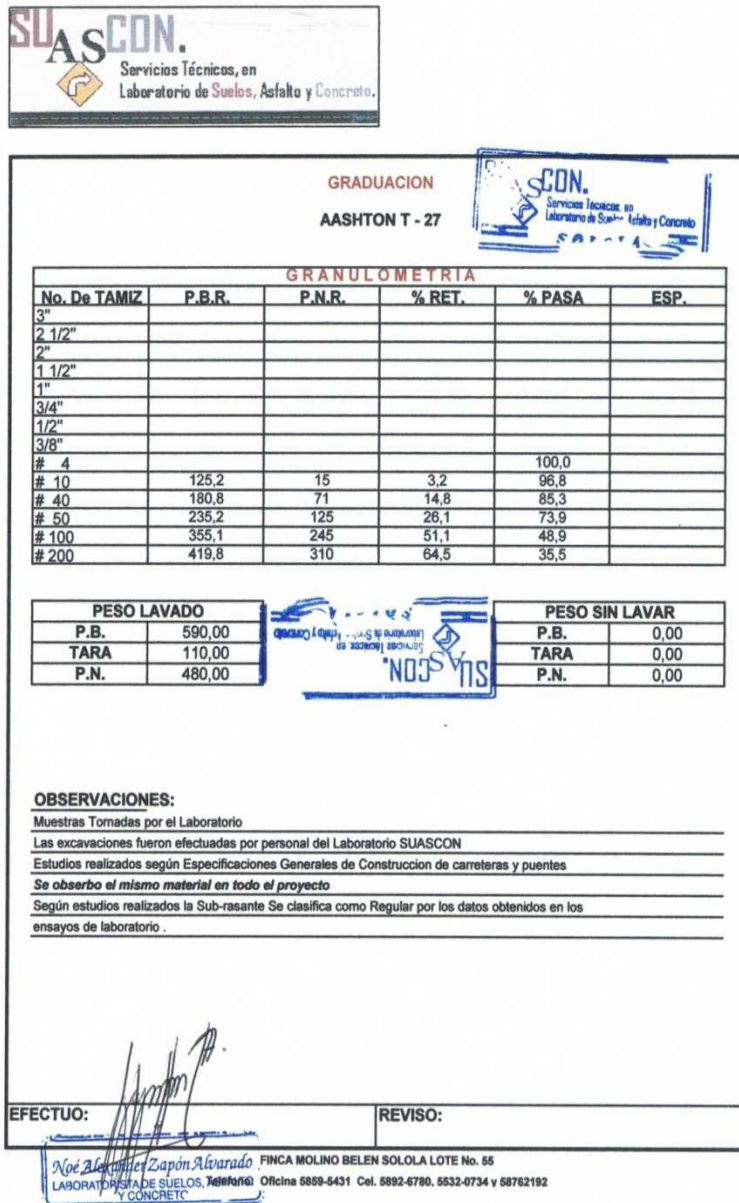 SUASCON.
Servicios Técnicos, en
Laboratorio de Suelos, Asfalto y Concreto.
GRADUACION
AASHTON T - 27
CON.
Servicios Tecnicos, en
Laboratorio de Suelos, Asfalto y Concreto
SOLOLA
GRANULOMETRIA
No. De TAMIZ P.B.R. P.N.R. % RET. % PASA ESP.
3"
2 1/2"
2"
1 1/2"
1"
3/4"
1/2"
3/8"
# 4 100,0
# 10 125,2 15 3,2 96,8
# 40 180,8 71 14,8 85,3
# 50 235,2 125 26,1 73,9
# 100 355,1 245 51,1 48,9
# 200 419,8 310 64,5 35,5
PESO LAVADO
P.B. 590,00
TARA 110,00
P.N. 480,00
SUASCON.
Servicios Tecnicos, en
Laboratorio de Asfalto y Concreto
PESO SIN LAVAR
P.B. 0,00
TARA 0,00
P.N. 0,00
OBSERVACIONES:
Muestras Tomadas por el Laboratorio
Las excavaciones fueron efectuadas por personal del Laboratorio SUASCON
Estudios realizados según Especificaciones Generales de Construccion de carreteras y puentes
Se observo el mismo material en todo el proyecto
Según estudios realizados la Sub-rasante Se clasifica como Regular por los datos obtenidos en los
ensayos de laboratorio .
EFECTUO: REVISO:
Noé Alexander Zapón Alvarado
LABORATORISTA DE SUELOS,
Y CONCRETO
FINCA MOLINO BELEN SOLOLA LOTE No. 55
Teléfono: Oficina 5859-5431 Cel. 5892-6780, 5532-0734 y 58762192